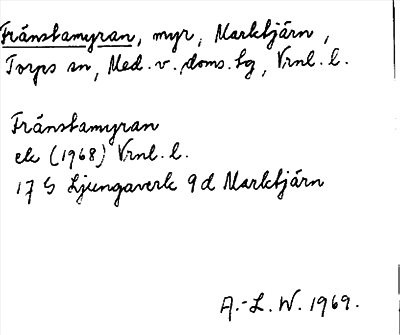 Frånstamyran, myr, Marktjärn,
Torps sn, Med. v. doms. tg, Vrnl. l.
Frånstamyran
ek (1968) Vrnl. l.
17 G Ljungaverk 9d Marktjärn
A.-L. W. 1969.